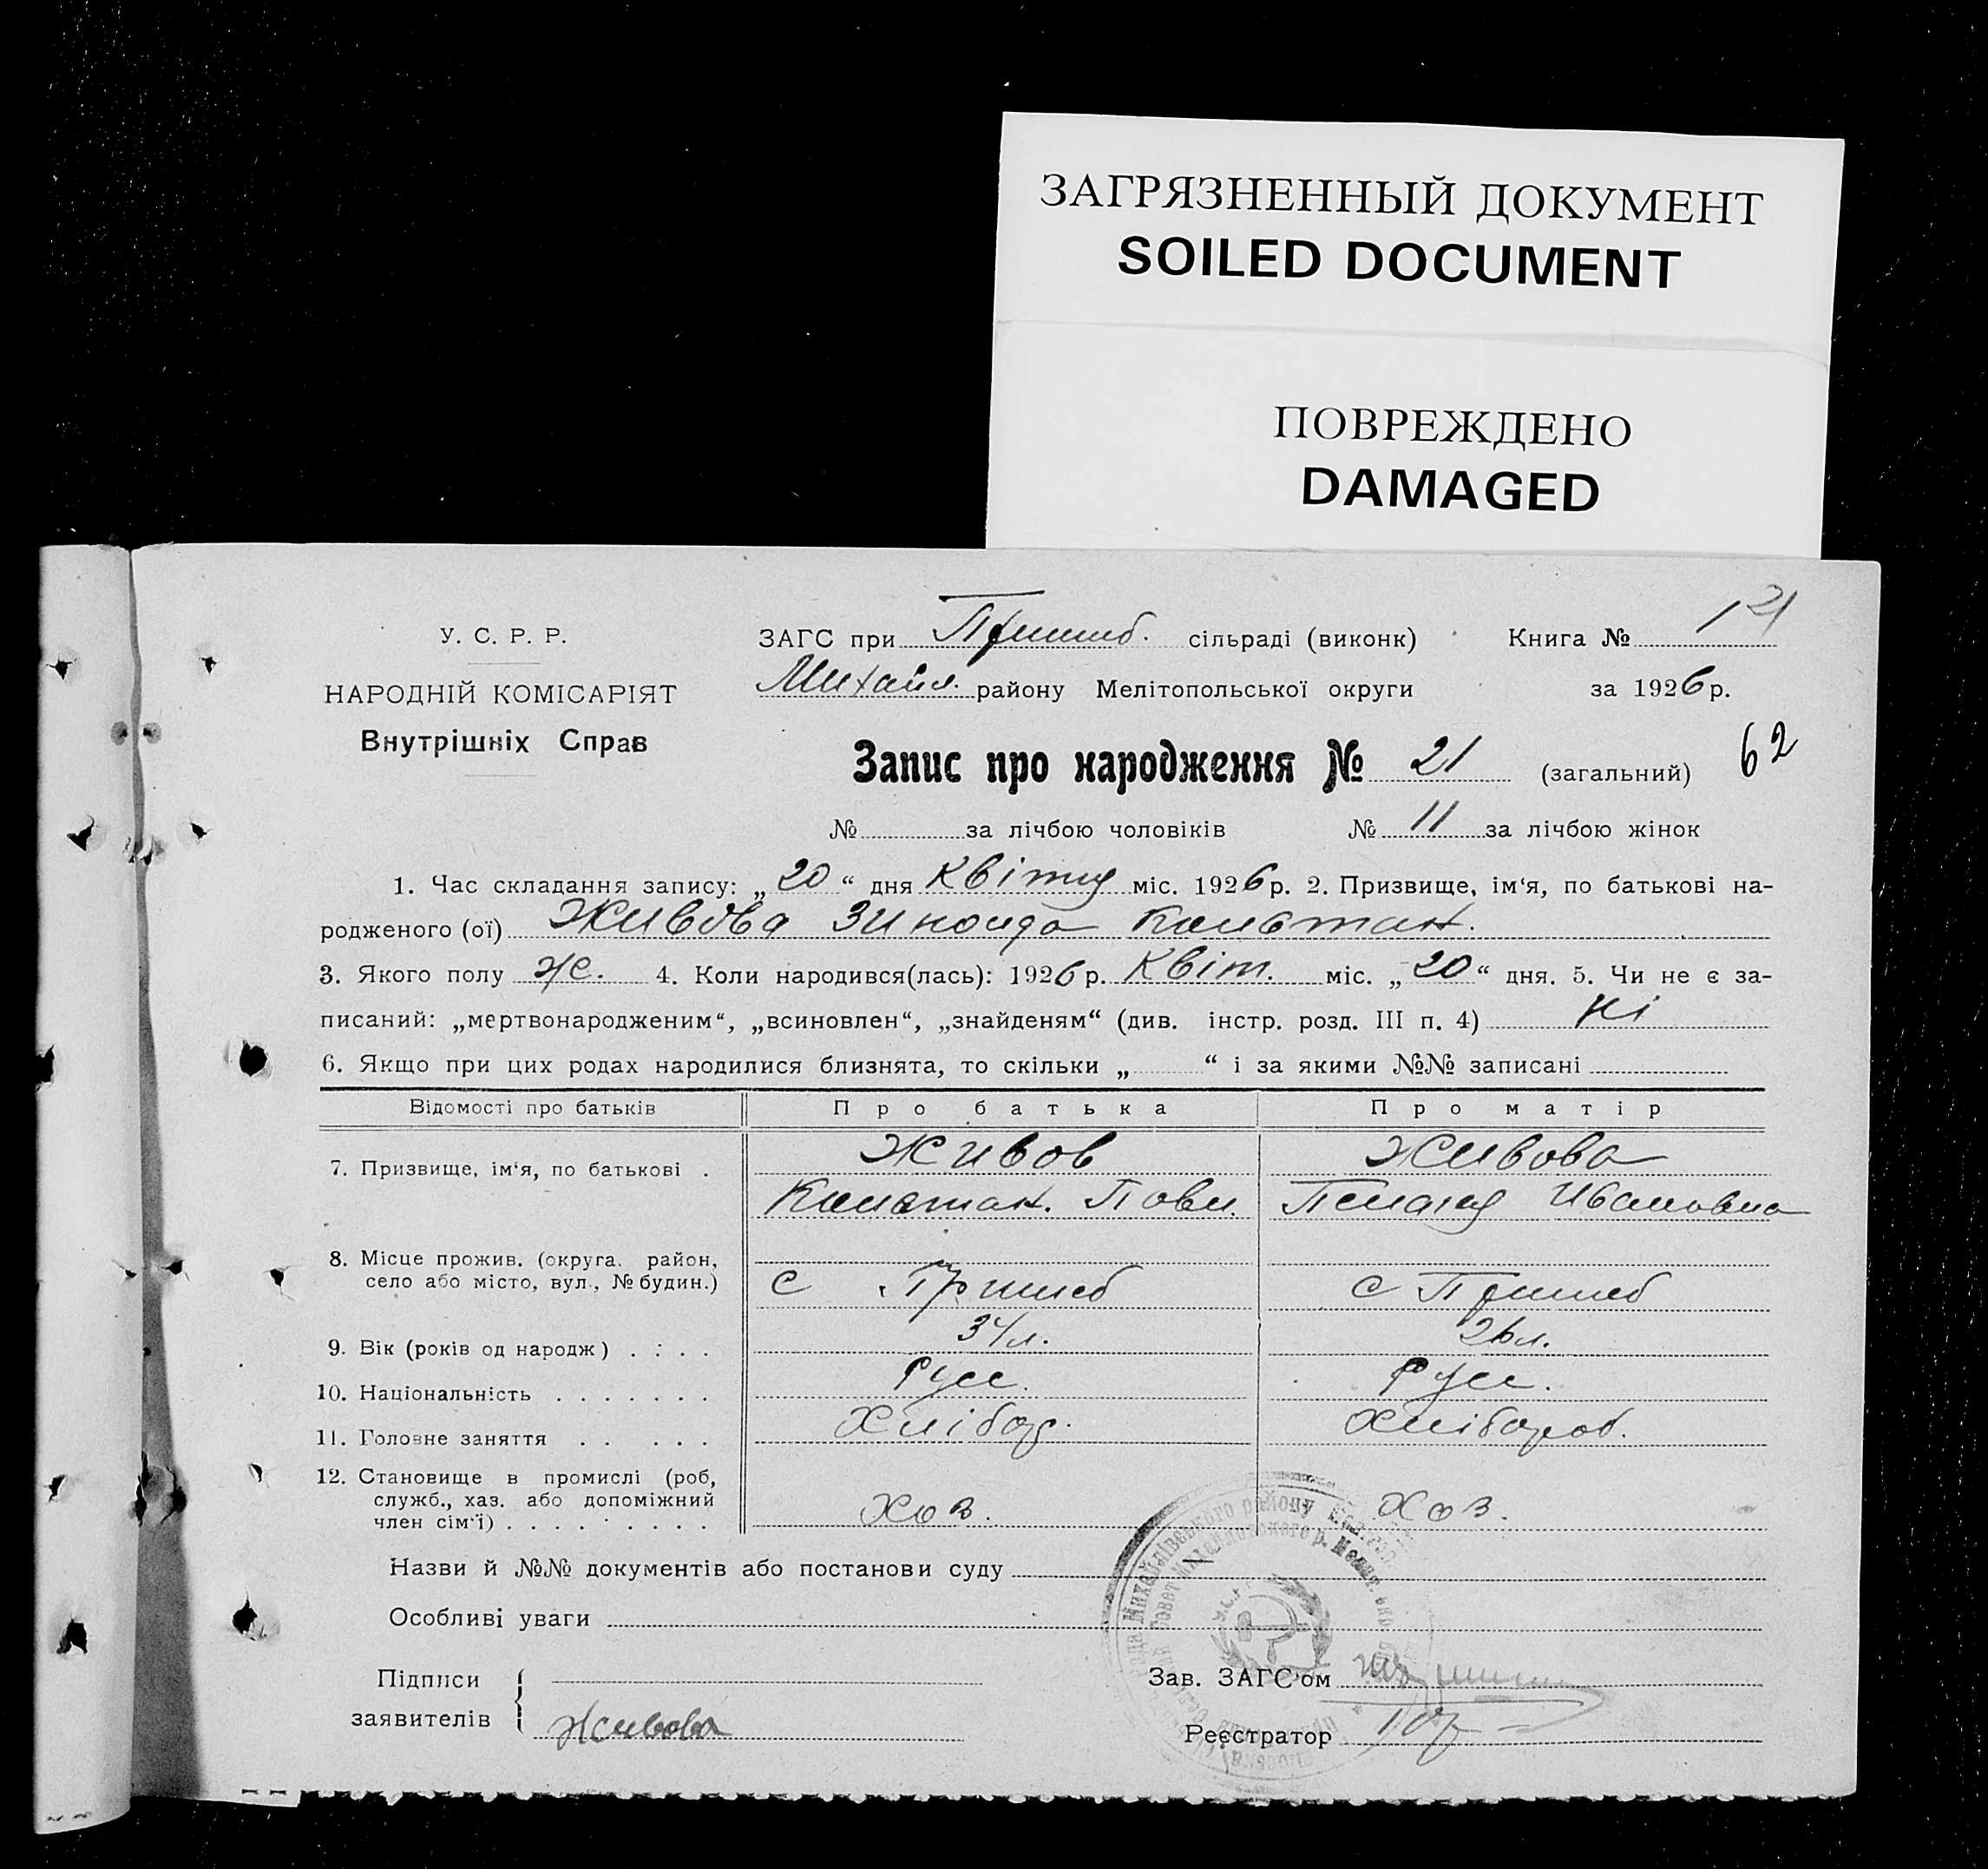 ЗАГРЯЗНЕННЫЙ ДОКУМЕНТ
SOILED DOCUMENT
ПОВРЕЖДЕНО
DAMAGED
У. С. Р. Р.
НАРОДНІЙ КОМІСАРІЯТ
Внутрішніх Справ
ЗАГС при Пришиб. сільраді (виконк) Книга № 1
21
Михайл. району Мелітопольської округи за 1926 р.
Запис про народження № 21 (загальний) 62
№ за лічбою чоловіків № 11 за лічбою жінок
1. Час складання запису: „20“ дня Квітня міс. 1926 р. 2. Призвище, ім‘я, по батькові на-
родженого (ої) Живова Зиноида Констан.
3. Якого полу ж. 4. Коли народився(лась): 1926 р. Квіт. міс. „20“ дня. 5. Чи не є за-
писаний: „мертвонародженим“, „всиновлен“, „знайденям“ (див. інстр. розд. III п. 4) Ні
6. Якщо при цих родах народилися близнята, то скільки „ “ і за якими №№ записані
Відомості про батьків Про батька Про матір
7. Призвище, ім‘я, по батькові . Живов Живова
Констан. Пови. Пелагия Ивановна
8. Місце прожив. (округа, район,
село або місто, вул., № будин.) с Пришиб с Пришиб
9. Вік (років од народж) . . . . 34 л. 26 л.
10. Національність . . . . . . . Русс. Русс.
11. Головне заняття . . . . . Хлібор. Хлібороб.
12. Становище в промислі (роб,
служб., хаз. або допоміжний
член сім‘ї) . . . . . . . . . Хоз. Хоз.
Назви й №№ документів або постанови суду
Особливі уваги
Підписи
заявителів Живова
Зав. ЗАГС‘ом
Реєстратор